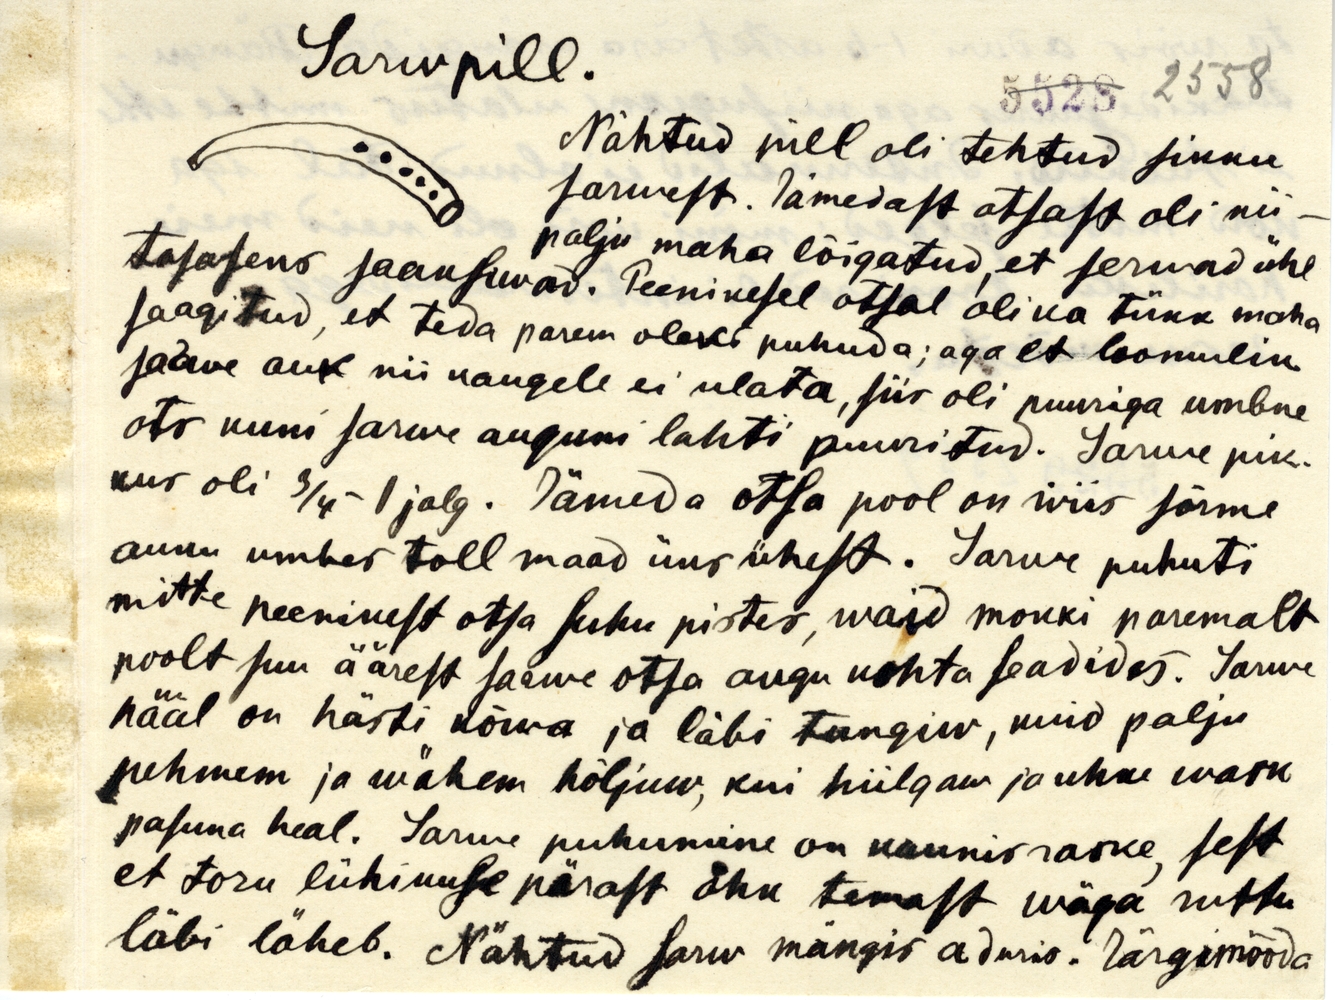 Sarwpill.
5528 2558
Nähtud pill oli tehtud sikku
sarwest. Jämedast otsast oli nii-
palju maha lõigatud, et serwad ühe
tasasens saansiwad. Peenikesel otsal oli ka tükk maha
saagitud, et teda parem oleks puhuda; aga et loomulik
sarwe auk nii kaugele ei ulata, siis oli puuriga umbne
ots kuni sarwe auguni lahti puuritud. Sarwe pik-
kus oli 3/4 - 1 jalg. Jämeda otsa pool on wiis sõrme
auku umbes toll maad üks ühest. Sarwe puhuti
mitte peenikest otsa suhu pistes, waid mokki paremalt
poolt suu äärest sarwe otsa augu kohta seadides. Sarwe
hääl on hästi kõwa ja läbi tungiw, kuid palju
pehmem ja wähem hõljuw, kui hiilgaw ja uhke wask
pasuna heal. Sarwe puhumine on kaunis raske, sest
et toru lühikuse pärast õhk temast wäga ruttu
läbi läheb. Nähtud sarw mängis a duris. Järgimööda